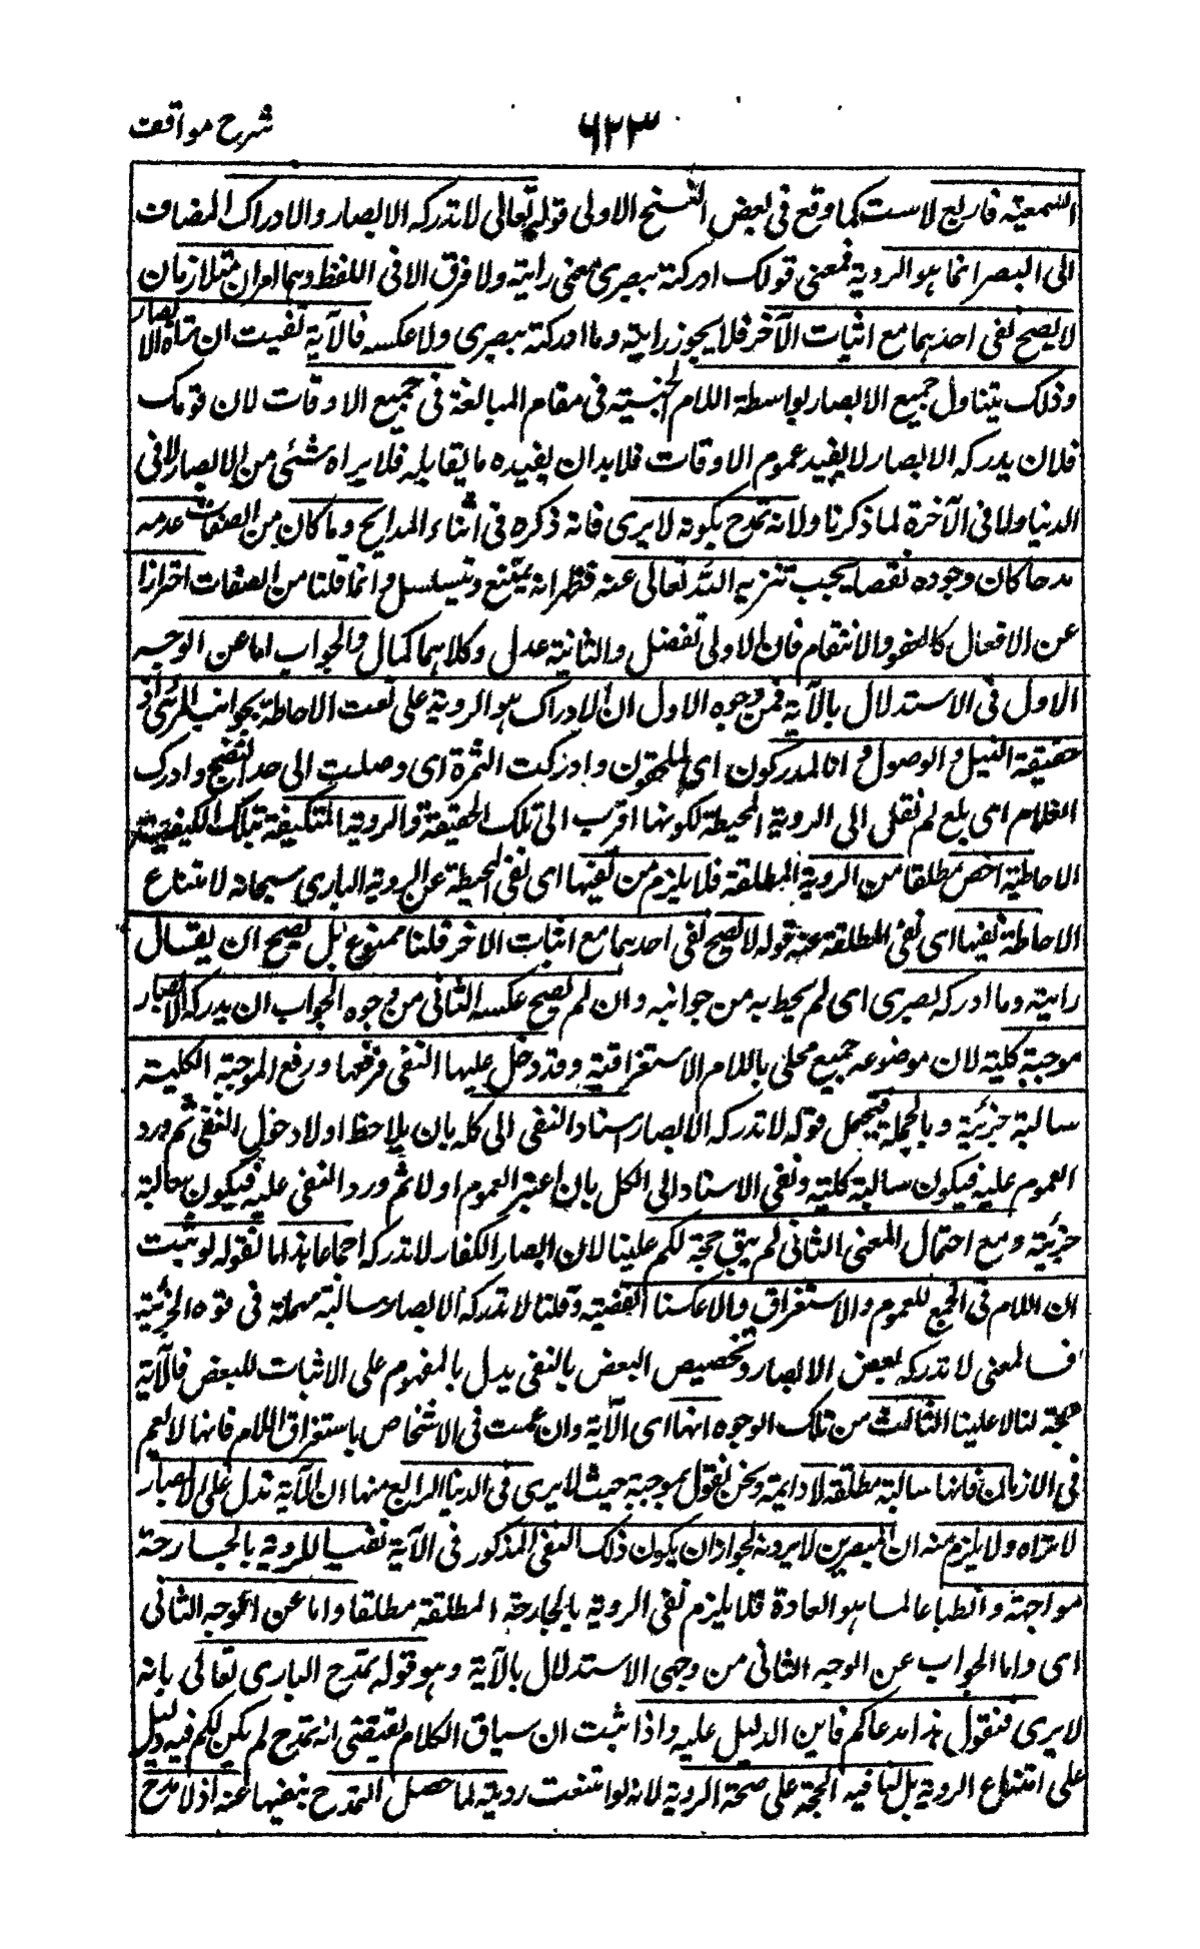 شرح مواقف
٦٢٣
السمعية فاربع لاست كما وقع فى بعض النسخ الاولى قوله تعالى لا تدركه الابصار والادراك المضاف
الى البصر انما هو الروية فمعنى قولك ادركته ببصرى معنى رايته ولا فرق الا فى اللفظ وهما امران متلازمان
لا يصح نفى احدهما مع اثبات الآخر فلا يجوز رايته وما ادركته ببصرى ولا عكسه فالآية نفيت ان تراه الابصار
وذلك يتناول جميع الابصار بواسطة اللام الجنسية فى مقام المبالغة فى جميع الاوقات لان قولك
فلان يدركه الابصار لا يفيد عموم الاوقات فلا بد ان يفيده ما يقابله فلا يراه شئى من الابصار لا فى
الدنيا ولا فى الآخرة لما ذكرنا ولانه تمدح بكونه لا يرى فانه ذكره فى اثناء المدايح وما كان من الصفات عدمه
مدحا كان وجوده نقصا يجب تنزيه الله تعالى عنه فظهر انه يمتنع رؤيته وانما قلنا من الصفات احترازا
عن الافعال كالعفو والانتقام فان الاولى تفضل والثانية عدل وكلاهما كمال والجواب اما عن الوجه
الاول فى الاستدلال بالآية فمن وجوه الاول ان الادراك هو الروية على نعت الاحاطة بجوانب المرئى اذ
حقيقة النيل والوصول وانا لمدركون اى لملحقون وادركت الثمرة اى وصلت الى حد النضج وادرك
الغلام اى بلغ ثم نقل الى الروية المحيطة لكونها اقرب الى تلك الحقيقة والروية المتكيفة بتلك الكيفية
الاحاطية اخص مطلقا من الروية المطلقة فلا يلزم من نفيها اى نفى المحيطة عن الروية البارى سبحانه لامتناع
الاحاطة نفيها اى نفى المطلقة عنه قوله لا يصح نفى احدهما مع اثبات الاخر قلنا ممنوع بل يصح ان يقال
رايته وما ادركه بصرى اى لم يحيط به من جوانبه وان لم يصح عكسه الثانى من وجوه الجواب ان يدركه الابصار
موجبة كلية لان موضوعه جمع محلى باللام الاستغراقية وقد دخل عليها النفى فرفعها ورفع الموجبة الكلية
سالبة جزئية وبالجملة فيحتمل قوله لا تدركه الابصار اسناد النفى الى كله بان يلاحظ اولا دخول النفى ثم ورد
العموم عليه فيكون سالبة كلية ونفى الاسناد الى الكل بان اعتبر العموم اولا ثم ورد النفى عليه فيكون سالبة
جزئية ومع احتمال المعنى الثانى لم يبق حجة لكم علينا لان ابصار الكفار لا تدركه اجماعا هذا ما نقوله لو ثبت
ان اللام فى الجمع للعموم والاستغراق والا عكسنا القضية وقلنا لا تدركه الابصار سالبة مهملة فى قوة الجزئية
فالمعنى لا تدركه بعض الابصار وتخصيص البعض بالنفى يدل بالمفهوم على الاثبات للبعض فالآية
حجة لنا لا علينا الثالث من تلك الوجوه انها اى الآية وان عمت فى الاشخاص باستغراق اللام فانها لا تعم
فى الازمان فانها سالبة مطلقة لا دائمة ونحن نقول بموجبه حيث لا يرى فى الدنيا الرابع منها ان الآية تدل على الابصار
لا تراه ولا يلزم منه ان المبصرين لا يرونه لجواز ان يكون ذلك النفى المذكور فى الآية نفيا للروية بالجارحة
مواجهة وانطباعا لما هو العادة فلا يلزم نفى الروية بالجارحة المطلقة مطلقا واما عن الوجه الثانى
اى واما الجواب عن الوجه الثانى من وجهى الاستدلال بالآية وهو قوله تمدح البارى تعالى بانه
لا يرى فنقول هذا مدعاكم فاين الدليل عليه واذا ثبت ان سياق الكلام يقتضى انه تمدح لم يكن لكم فيه دليل
على امتناع الروية بل لنا فيه الحجة على صحة الروية لانه لو امتنعت رويته لما حصل التمدح بنفيها عنه اذ لا مدح